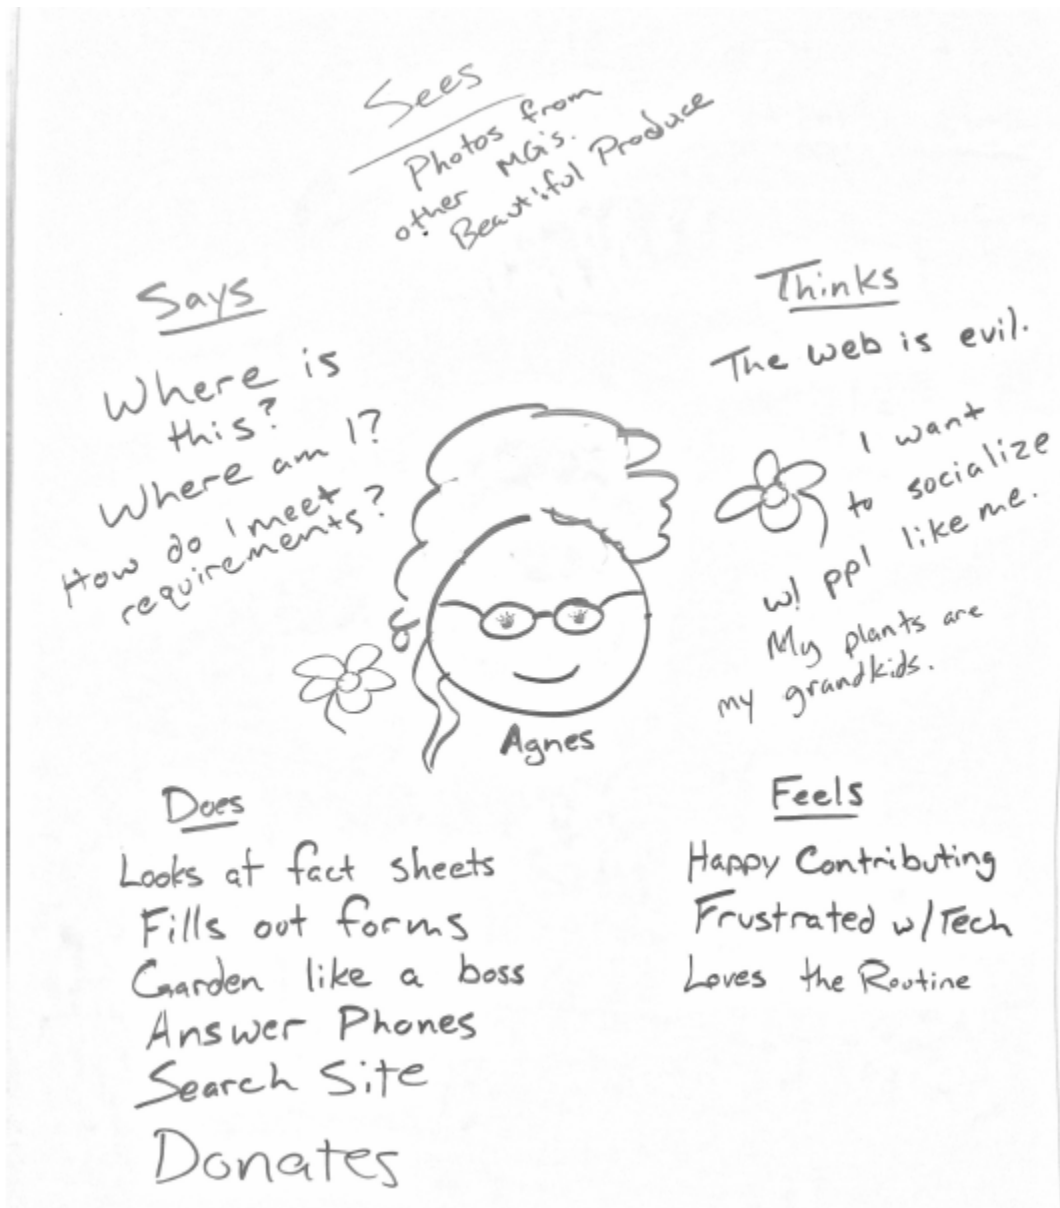 Sees
Photos from
other MG's.
Beautiful Produce
Says
Where is
this?
Where am I?
How do I meet
requirements?
Thinks
The web is evil.
I want
to socialize
w/ ppl like me.
My plants are
my grandkids.
Agnes
Does
Looks at fact sheets
Fills out forms
Garden like a boss
Answer Phones
Search Site
Donates
Feels
Happy Contributing
Frustrated w/Tech
Loves the Routine